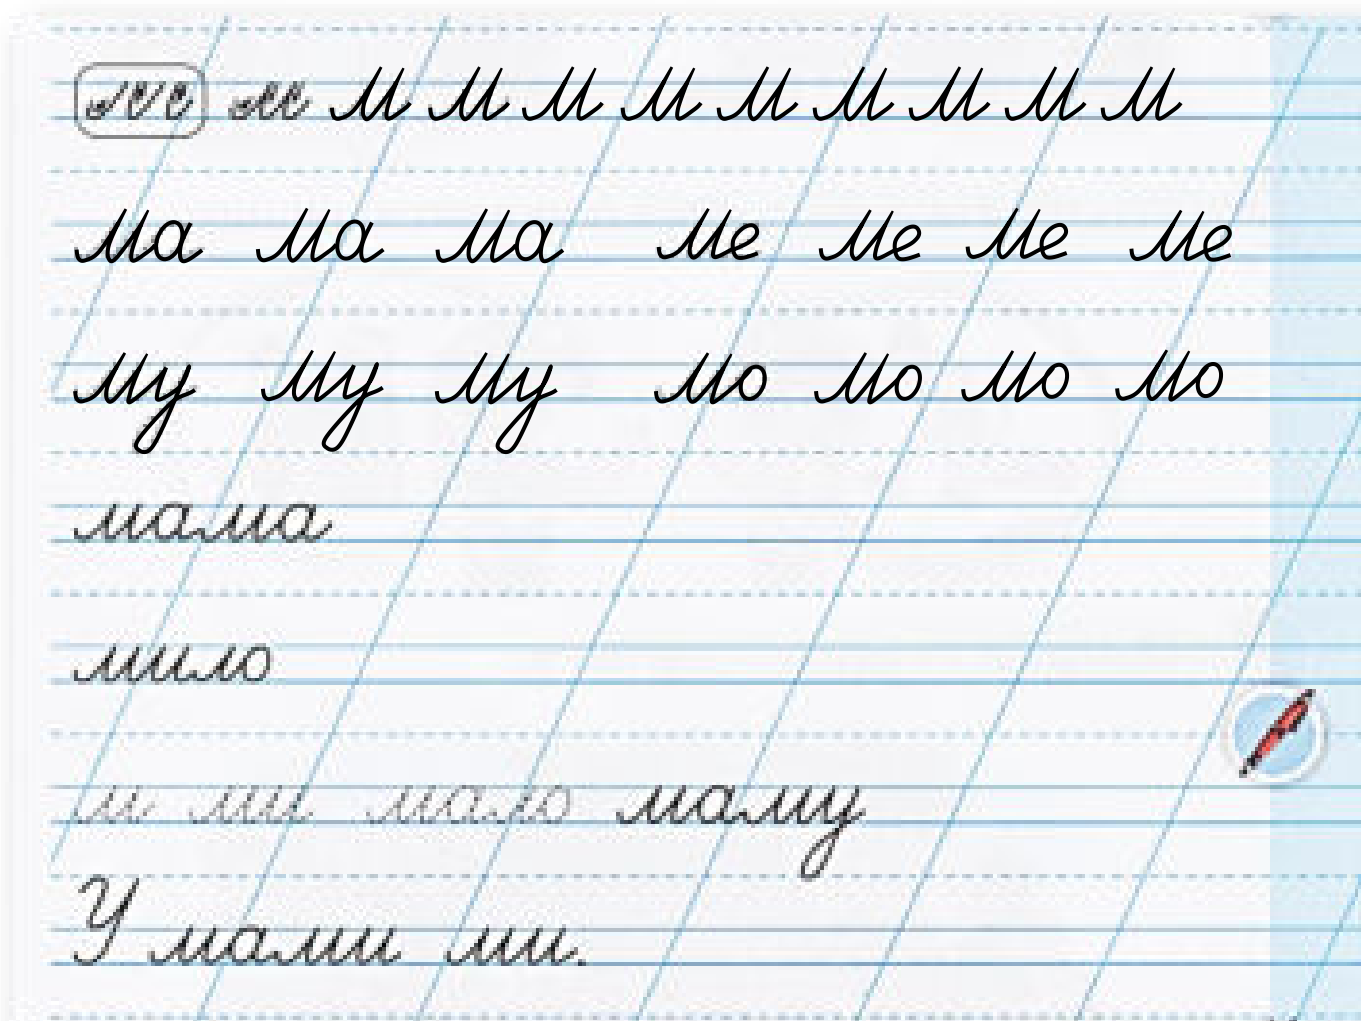 м м м м м м м м м м м
ма ма ма ме ме ме ме
му му му мо мо мо мо
мама
мило
м ми мало маму
У мами ми.